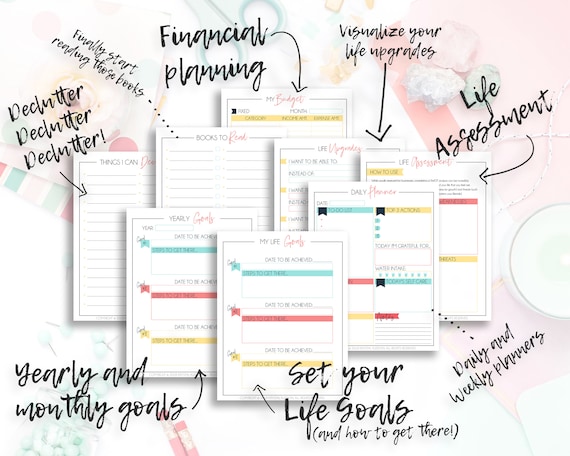 Finally start
reading those books
Financial
planning
Visualize your
life upgrades
Declutter
Declutter
Declutter!
Life
Assessment
MY Budget
FIXED
MONTH
CATEGORY
INCOME AMT.
EXPENSE AMT.
BOOKS TO Read
THINGS I CAN
LIFE Upgrades
I WANT TO BE ABLE TO:
INSTEAD OF
I WANT
INSTEAD
I WANT
INSTEAD
LIFE Assessment
HOW TO USE
THREATS
DAILY Planner
TO DO LIST
TOP 3 ACTIONS
TODAY I'M GRATEFUL FOR...
WATER INTAKE
TODAY'S SELF CARE
YEARLY Goals
YEAR
DATE TO BE ACHIEVED
STEPS TO GET THERE
DATE TO BE ACHIEVED
DATE TO BE ACHIEVED
MY LIFE Goals
DATE TO BE ACHIEVED
STEPS TO GET THERE...
DATE TO BE ACHIEVED
STEPS TO GET THERE...
DATE TO BE ACHIEVED
STEPS TO GET THERE...
Yearly and
monthly goals
Set your
Life Goals
(and how to get there!)
Daily and
Weekly planners